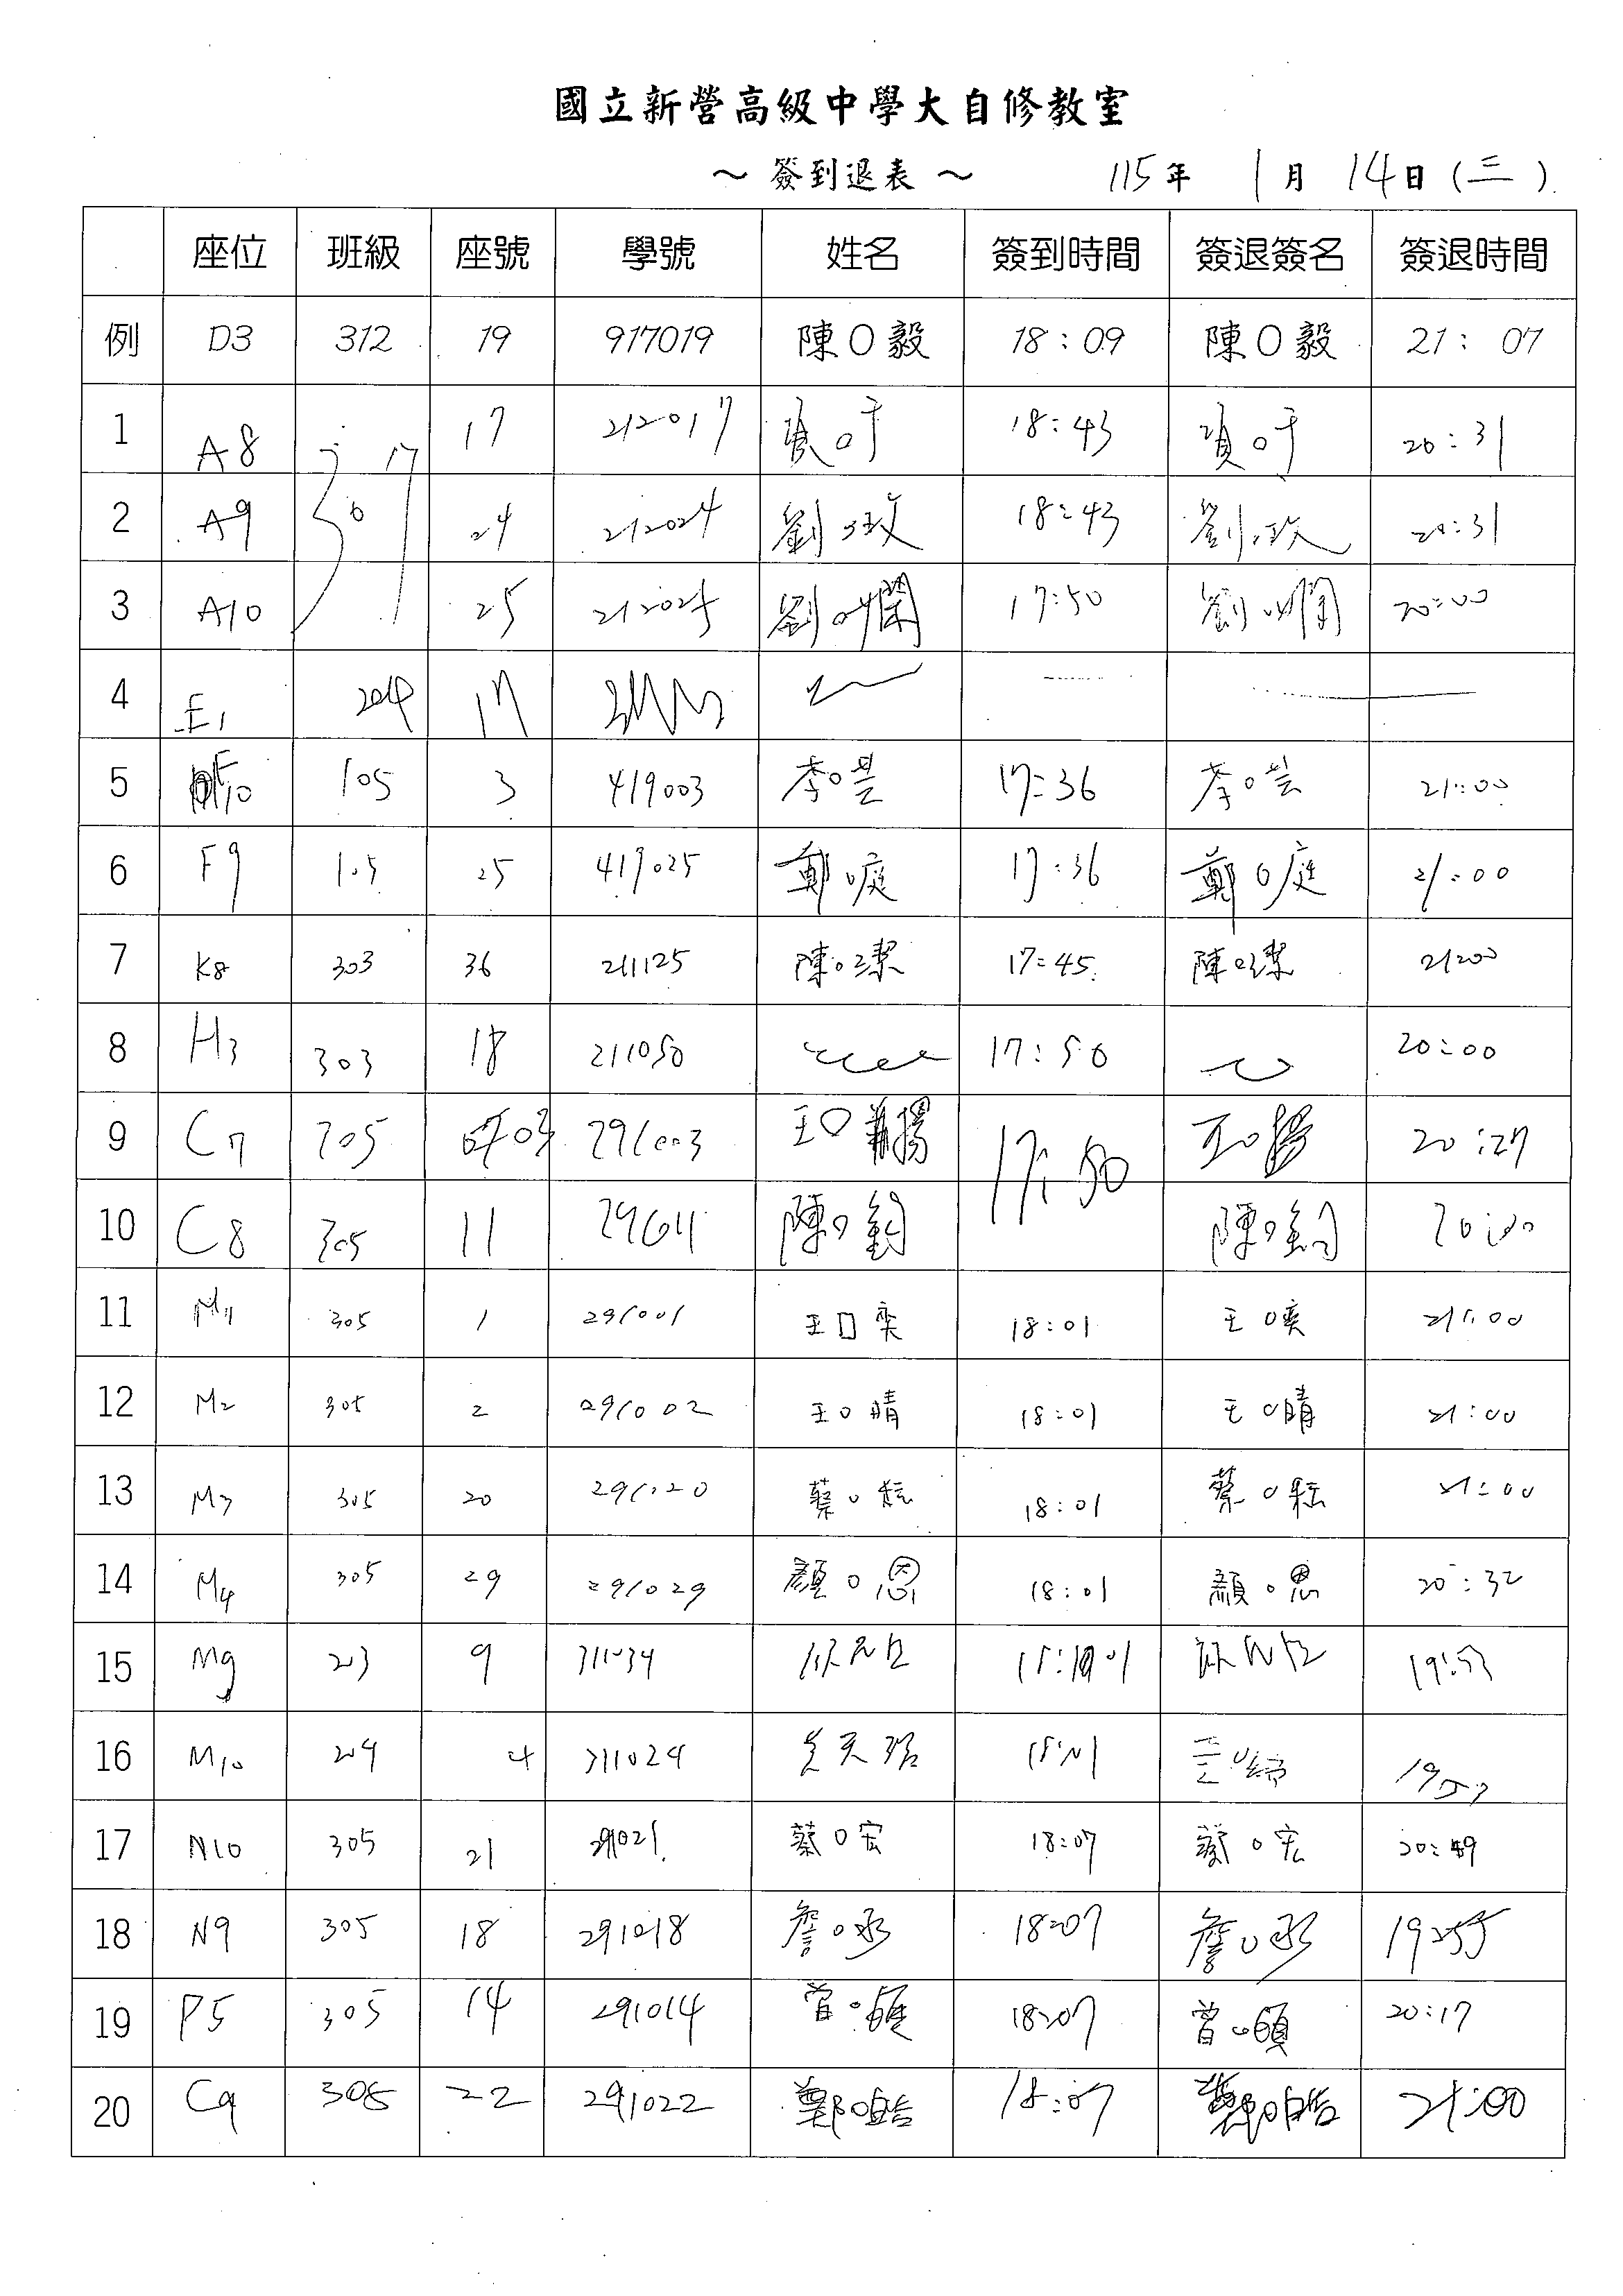 國立新營高級中學大自修教室
～ 簽到退表 ～ 115年 1月 14日(三).
座位 班級 座號 學號 姓名 簽到時間 簽退簽名 簽退時間
例 D3 312 19 917019 陳O毅 18:09 陳O毅 21:07
1 A8 307 17 212017 18:43 20:31
2 A9 24 212024 劉 18:43 劉 20:31
3 A10 25 212025 劉 17:50 劉 20:00
4 E1 204 17
5 F10 105 3 419003 李O芸 17:36 李O芸 21:00
6 F9 105 25 419025 鄭O庭 17:36 鄭O庭 21:00
7 K8 303 36 211125 陳O潔 17:45 陳O潔 21:00
8 H3 303 18 211050 17:50 20:00
9 C7 305 03 291003 王O 17:50 王O 20:27
10 C8 305 11 291011 陳O鈞 陳O鈞 20:00
11 M1 305 1 291001 王O奕 18:01 王O奕 21:00
12 M2 305 2 291002 王O晴 18:01 王O晴 21:00
13 M3 305 20 291020 蔡O耘 18:01 蔡O耘 21:00
14 M4 305 29 291029 顏O恩 18:01 顏O恩 20:32
15 M9 203 9 311034 19:53
16 M10 204 4 311024 18:01 19:53
17 N10 305 21 291021 蔡O宏 18:07 蔡O宏 20:49
18 N9 305 18 291018 詹O丞 18:07 詹O丞 19:55
19 P5 305 14 291014 曾O頤 18:07 曾O頤 20:17
20 C9 305 22 291022 鄭O皓 18:07 鄭O皓 21:00